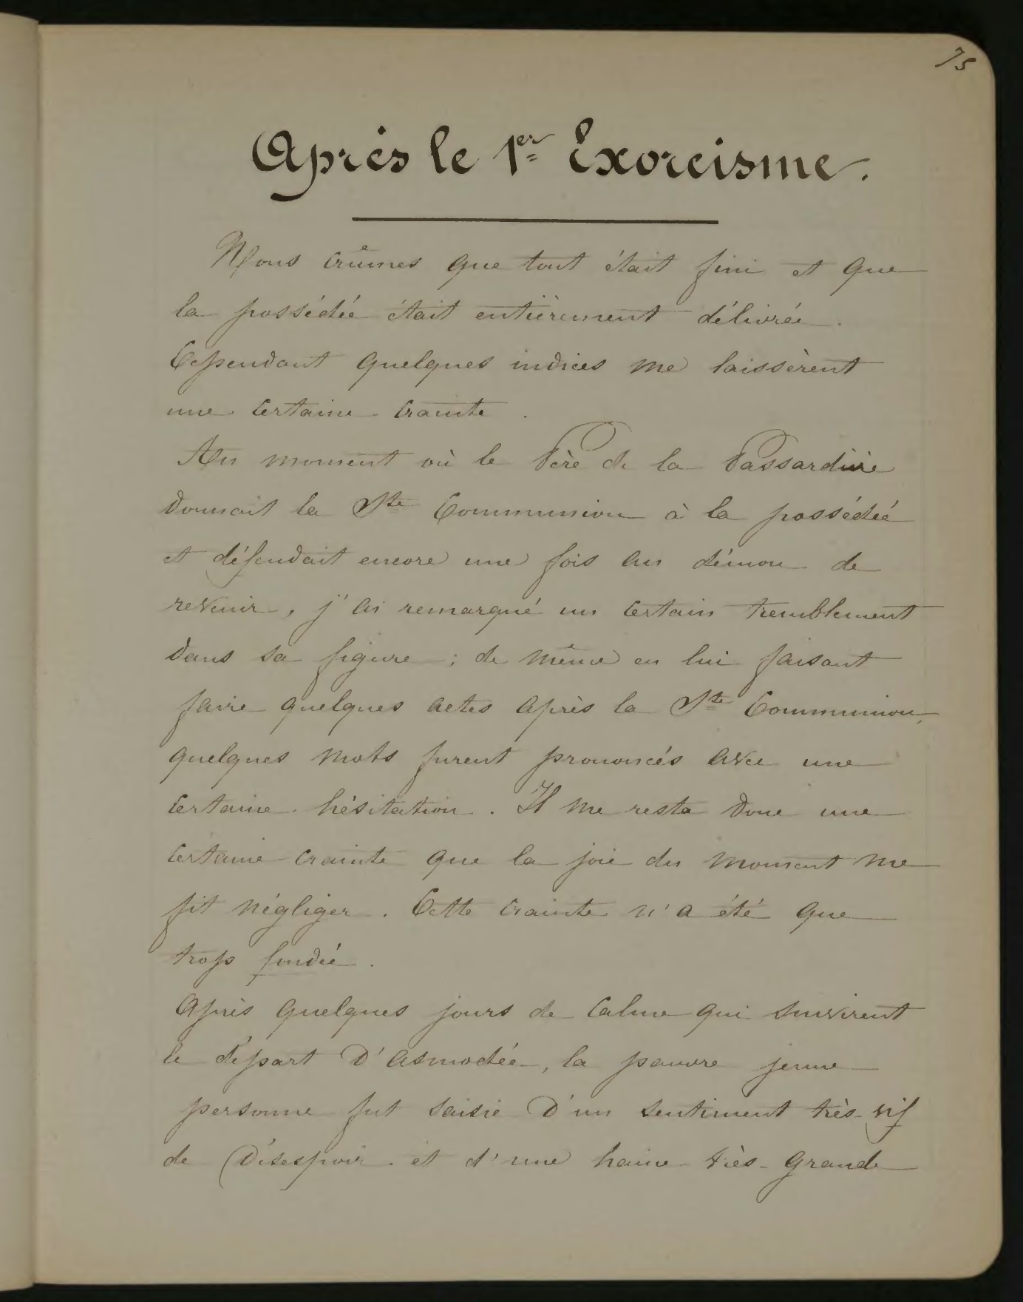 75
Après le 1er Exorcisme.
Nous crûmes que tout était fini et que
la possédée était entièrement délivrée.
Cependant quelques indices me laissèrent
une certaine crainte.
Au moment où le Père de la Passardière
donnait la Ste Communion à la possédée
et défendait encore une fois au démon de
revenir, j'ai remarqué un certain tremblement
dans sa figure ; de même en lui faisant
faire quelques actes après la Ste Communion,
quelques mots furent prononcés avec une
certaine hésitation. Il me resta donc une
certaine crainte que la joie du moment me
fit négliger. Cette crainte n'a été que
trop fondée.
Après quelques jours de calme qui suivirent
le départ d'Asmodée, la pauvre jeune
personne fut saisie d'un sentiment très-vif
de désespoir et d'une haine très-grande